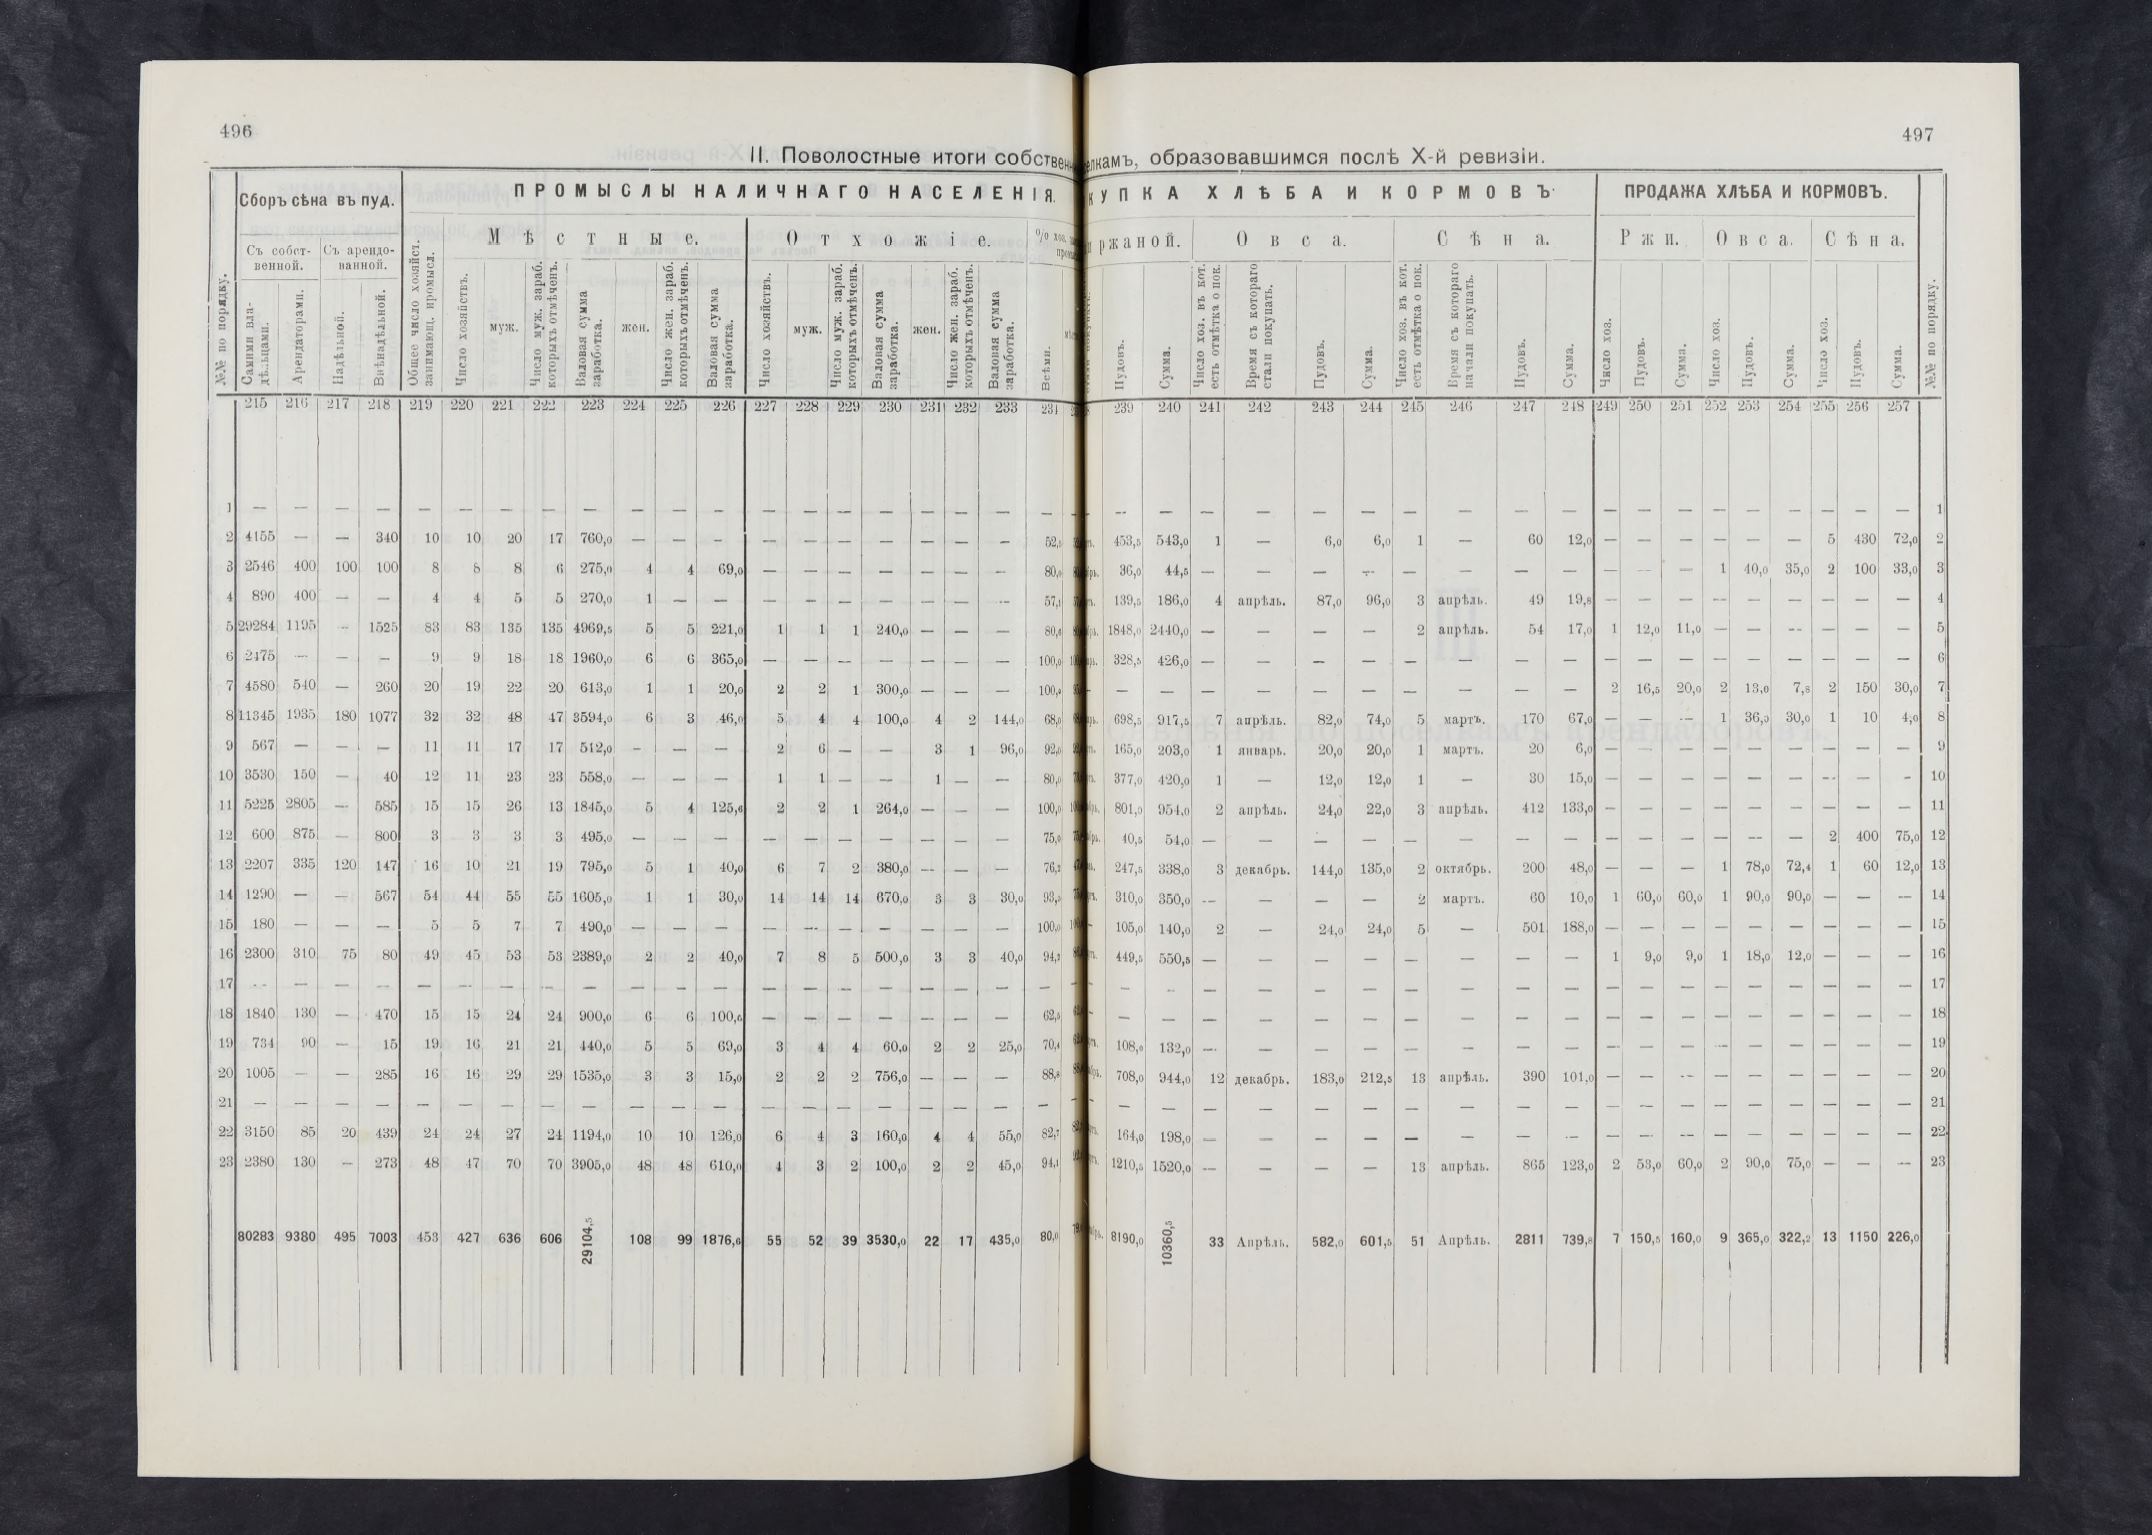 496
497
II. Поволостные итоги собственн елкамъ, образовавшимся послѣ X-й ревизіи.
№№ по порядку.
Сборъ сѣна въ пуд.
ПРОМЫСЛЫ НАЛИЧНАГО НАСЕЛЕНІЯ.
КУПКА ХЛѢБА И КОРМОВЪ
ПРОДАЖА ХЛѢБА И КОРМОВЪ.
№№ по порядку.
Съ собственной.
Съ арендованной.
Общее число хозяйст. занимающ. промысл.
Мѣстные.
Отхожіе.
ржаной.
Овса.
Сѣна.
Ржи.
Овса.
Сѣна.
Самими владѣльцами.
Арендаторами.
Надѣльной.
Внѣнадѣльной.
Число хозяйствъ.
муж.
Число муж. зараб. которыхъ отмѣченъ.
Валовая сумма заработка.
жен.
Число жен. зараб. которыхъ отмѣченъ.
Валовая сумма заработка.
Число хозяйствъ.
муж.
Число муж. зараб. которыхъ отмѣченъ.
Валовая сумма заработка.
жен.
Число жен. зараб. которыхъ отмѣченъ.
Валовая сумма заработка.
Всѣми.
Пудовъ.
Сумма.
Число хоз. въ кот. есть отмѣтка о пок.
Время съ котораго стали покупать.
Пудовъ.
Сумма.
Число хоз. въ кот. есть отмѣтка о пок.
Время съ котораго начали покупать.
Пудовъ.
Сумма.
Число хоз.
Пудовъ.
Сумма.
Число хоз.
Пудовъ.
Сумма.
Число хоз.
Пудовъ.
Сумма.
215 216 217 218 219 220 221 222 223 224 225 226 227 228 229 230 231 232 233 234 239 240 241 242 243 244 245 246 247 248 249 250 251 252 253 254 255 256 257
1 — — — — — — — — — — — — — — — — — — — — — — — — — — — — — — — — — — — — — — — 1
2 4155 — — 340 10 10 20 17 760,0 — — — — — — — — — — 52,5 453,5 543,0 1 — 6,0 6,0 1 — 60 12,0 — — — — — — 5 430 72,0 2
3 2546 400 100 100 8 8 8 6 275,0 4 4 69,0 — — — — — — — 80,0 36,0 44,5 — — — — — — — — — — — 1 40,0 35,0 2 100 33,0 3
4 890 400 — — 4 4 5 5 270,0 1 — — — — — — — — — 57,1 139,5 186,0 4 апрѣль. 87,0 96,0 3 апрѣль. 49 19,8 — — — — — — — — — 4
5 29284 1195 — 1525 83 83 135 135 4969,5 5 5 221,0 1 1 1 240,0 — — — 80,6 1848,0 2440,0 — — — — 2 апрѣль. 54 17,0 1 12,0 11,0 — — — — — — 5
6 2475 — — — 9 9 18 18 1960,0 6 6 365,0 — — — — — — — 100,0 328,5 426,0 — — — — — — — — — — — — — — — — — 6
7 4580 540 — 260 20 19 22 20 613,0 1 1 20,0 2 2 1 300,0 — — — 100,0 — — — — — — — — — — 2 16,5 20,0 2 13,0 7,8 2 150 30,0 7
8 11345 1935 180 1077 32 32 48 47 3594,0 6 3 46,0 5 4 4 100,0 4 2 144,0 68,0 698,5 917,5 7 апрѣль. 82,0 74,0 5 мартъ. 170 67,0 — — — 1 36,0 30,0 1 10 4,0 8
9 567 — — — 11 11 17 17 512,0 — — — 2 6 — — 3 1 96,0 92,0 165,0 203,0 1 январь. 20,0 20,0 1 мартъ. 20 6,0 — — — — — — — — — 9
10 3530 150 — 40 12 11 23 23 558,0 — — — 1 1 — — 1 — — 80,0 377,0 420,0 1 — 12,0 12,0 1 — 30 15,0 — — — — — — — — — 10
11 5225 2805 — 585 15 15 26 13 1845,0 5 4 125,6 2 2 1 264,0 — — — 100,0 801,0 954,0 2 апрѣль. 24,0 22,0 3 апрѣль. 412 133,0 — — — — — — — — — 11
12 600 875 — 800 3 3 3 3 495,0 — — — — — — — — — — 75,0 40,5 54,0 — — — — — — — — — — — — — — 2 400 75,0 12
13 2207 335 120 147 16 10 21 19 795,0 5 1 40,0 6 7 2 380,0 — — — 76,2 247,5 338,0 3 декабрь. 144,0 135,0 2 октябрь. 200 48,0 — — — 1 78,0 72,4 1 60 12,0 13
14 1290 — — 567 54 44 55 55 1605,0 1 1 30,0 14 14 14 670,0 3 3 30,0 93,5 310,0 350,0 — — — — 2 мартъ. 60 10,0 1 60,0 60,0 1 90,0 90,0 — — — 14
15 180 — — — 5 5 7 7 490,0 — — — — — — — — — — 100,0 105,0 140,0 2 — 24,0 24,0 5 — 501 188,0 — — — — — — — — — 15
16 2300 310 75 80 49 45 53 53 2389,0 2 2 40,0 7 8 5 500,0 3 3 40,0 94,2 449,5 550,5 — — — — — — — — 1 9,0 9,0 1 18,0 12,0 — — — 16
17 — — — — — — — — — — — — — — — — — — — — — — — — — — — — — — — — — — — — — — — 17
18 1840 130 — 470 15 15 24 24 900,0 6 6 100,6 — — — — — — — 62,5 — — — — — — — — — — — — — — — — — — — 18
19 734 90 — 15 19 16 21 21 440,0 5 5 69,0 3 4 4 60,0 2 2 25,0 70,4 108,0 132,0 — — — — — — — — — — — — — — — — — 19
20 1005 — — 285 16 16 29 29 1535,0 3 3 15,0 2 2 2 756,0 — — — 88,8 708,0 944,0 12 декабрь. 183,0 212,5 13 апрѣль. 390 101,0 — — — — — — — — — 20
21 — — — — — — — — — — — — — — — — — — — — — — — — — — — — — — — — — — — — — — — 21
22 3150 85 20 439 24 24 27 24 1194,0 10 10 126,0 6 4 3 160,0 4 4 55,0 82,7 164,0 198,0 — — — — — — — — — — — — — — — — — 22
23 2380 130 — 273 48 47 70 70 3905,0 48 48 610,0 4 3 2 100,0 2 2 45,0 94,1 1210,5 1520,0 — — — — 13 апрѣль. 865 123,0 2 53,0 60,0 2 90,0 75,0 — — — 23
80283 9380 495 7003 453 427 636 606 29104,5 108 99 1876,6 55 52 39 3530,0 22 17 435,0 80,0 8190,0 10360,5 33 Апрѣль. 582,0 601,5 51 Апрѣль. 2811 739,8 7 150,5 160,0 9 365,0 322,2 13 1150 226,0